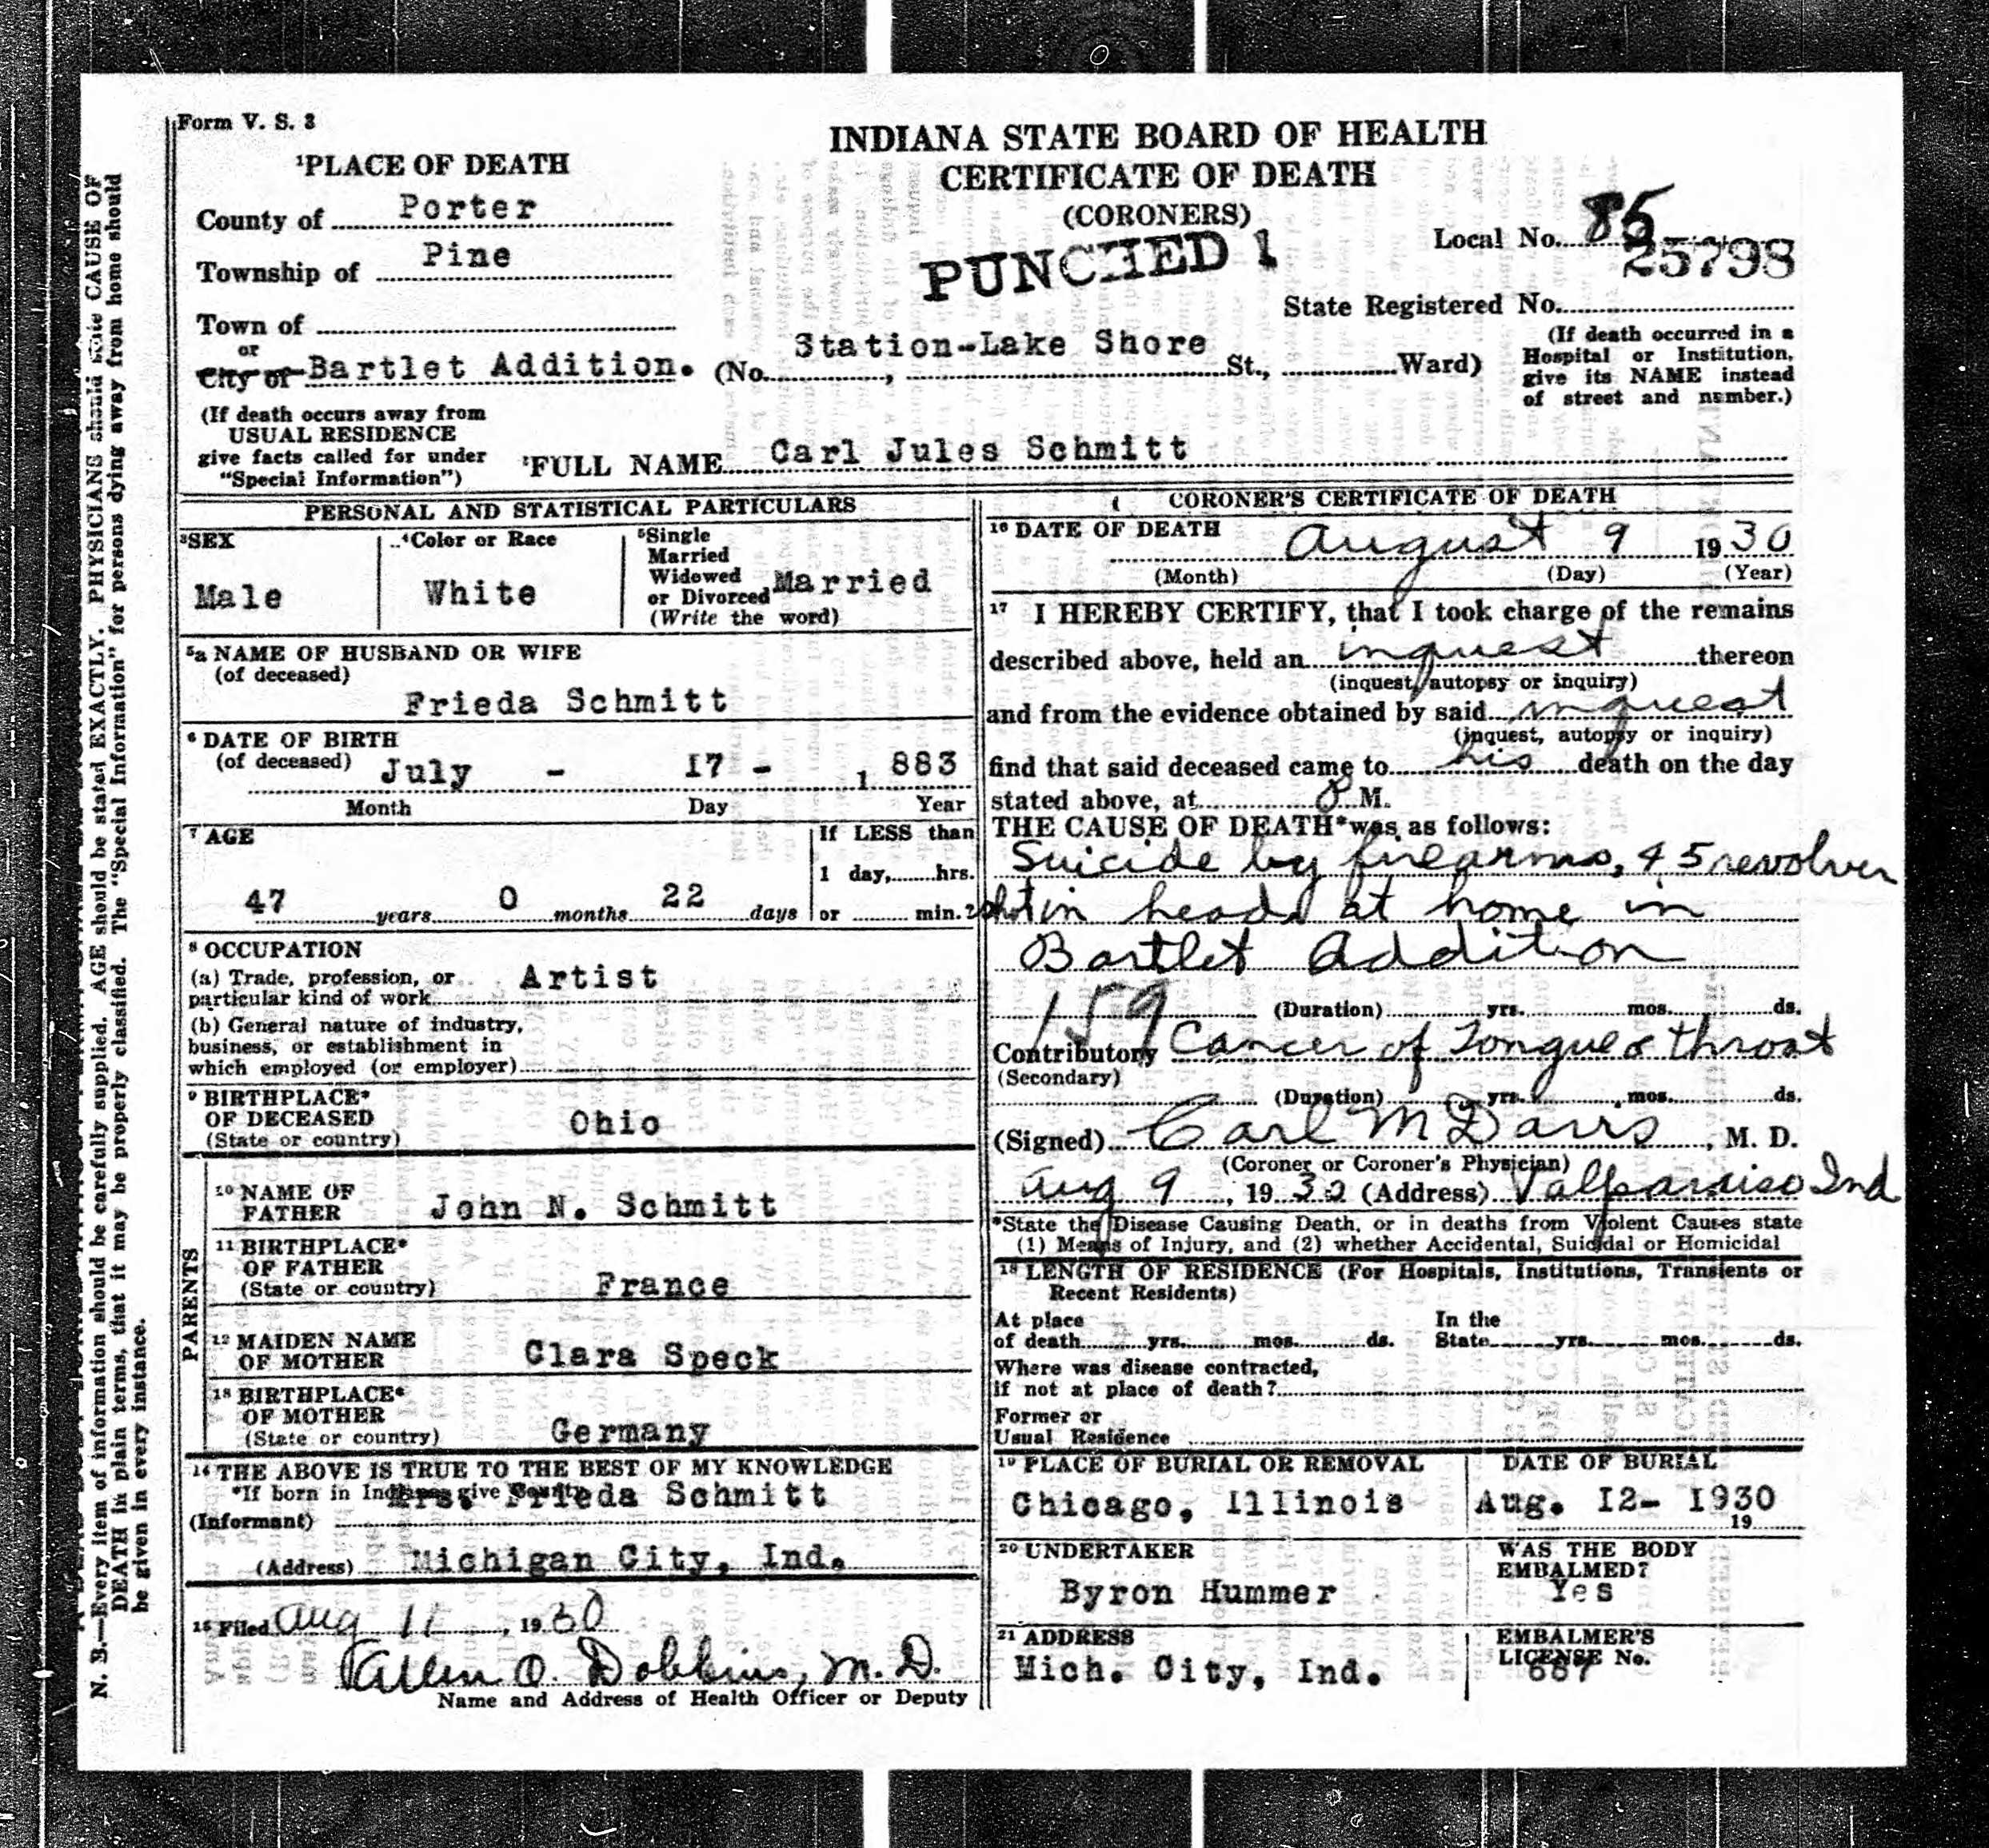 Form V. S. 3
INDIANA STATE BOARD OF HEALTH
CERTIFICATE OF DEATH
(CORONERS)
PUNCHED 1
Local No. 85
25798
State Registered No.
(If death occurred in a
Hospital or Institution,
give its NAME instead
of street and number.)
1 PLACE OF DEATH
County of Porter
Township of Pine
Town of
or
City of Bartlet Addition. (No. , Station-Lake Shore St., Ward)
(If death occurs away from
USUAL RESIDENCE
give facts called for under
"Special Information")
2 FULL NAME Carl Jules Schmitt
PERSONAL AND STATISTICAL PARTICULARS
3 SEX
Male
4 Color or Race
White
5 Single
Married
Widowed
or Divorced Married
(Write the word)
5a NAME OF HUSBAND OR WIFE
(of deceased)
Frieda Schmitt
6 DATE OF BIRTH
(of deceased) July - 17 - 1 883
Month Day Year
7 AGE
47 years 0 months 22 days
If LESS than
1 day, hrs.
or min.?
8 OCCUPATION
(a) Trade, profession, or
particular kind of work Artist
(b) General nature of industry,
business, or establishment in
which employed (or employer)
9 BIRTHPLACE*
OF DECEASED
(State or country) Ohio
PARENTS
10 NAME OF
FATHER John N. Schmitt
11 BIRTHPLACE*
OF FATHER
(State or country) France
12 MAIDEN NAME
OF MOTHER Clara Speck
13 BIRTHPLACE*
OF MOTHER
(State or country) Germany
14 THE ABOVE IS TRUE TO THE BEST OF MY KNOWLEDGE
*If born in Indiana give County
(Informant) Mrs. Frieda Schmitt
(Address) Michigan City, Ind.
15 Filed Aug 11, 1930
Allen O. Dobbins, M. D.
Name and Address of Health Officer or Deputy
CORONER'S CERTIFICATE OF DEATH
16 DATE OF DEATH August 9 1930
(Month) (Day) (Year)
17 I HEREBY CERTIFY, that I took charge of the remains
described above, held an inquest thereon
(inquest, autopsy or inquiry)
and from the evidence obtained by said inquest
(inquest, autopsy or inquiry)
find that said deceased came to his death on the day
stated above, at M.
THE CAUSE OF DEATH* was as follows:
Suicide by firearms, 45 revolver
shot in head at home in
Bartlet Addition
159
(Duration) yrs. mos. ds.
Contributory Cancer of Tongue & throat
(Secondary)
(Duration) yrs. mos. ds.
(Signed) Carl M Davis, M. D.
(Coroner or Coroner's Physician)
Aug 9, 1930 (Address) Valparaiso Ind
*State the Disease Causing Death, or in deaths from Violent Causes state
(1) Means of Injury, and (2) whether Accidental, Suicidal or Homicidal
18 LENGTH OF RESIDENCE (For Hospitals, Institutions, Transients or
Recent Residents)
At place
of death yrs. mos. ds.
In the
State yrs. mos. ds.
Where was disease contracted,
if not at place of death?
Former or
Usual Residence
19 PLACE OF BURIAL OR REMOVAL
Chicago, Illinois
DATE OF BURIAL
Aug. 12- 1930
19
20 UNDERTAKER
Byron Hummer
WAS THE BODY
EMBALMED?
Yes
21 ADDRESS
Mich. City, Ind.
EMBALMER'S
LICENSE No.
687
N. B.—Every item of information should be carefully supplied. AGE should be stated EXACTLY. PHYSICIANS should state CAUSE OF
DEATH in plain terms, that it may be properly classified. The "Special Information" for persons dying away from home should
be given in every instance.